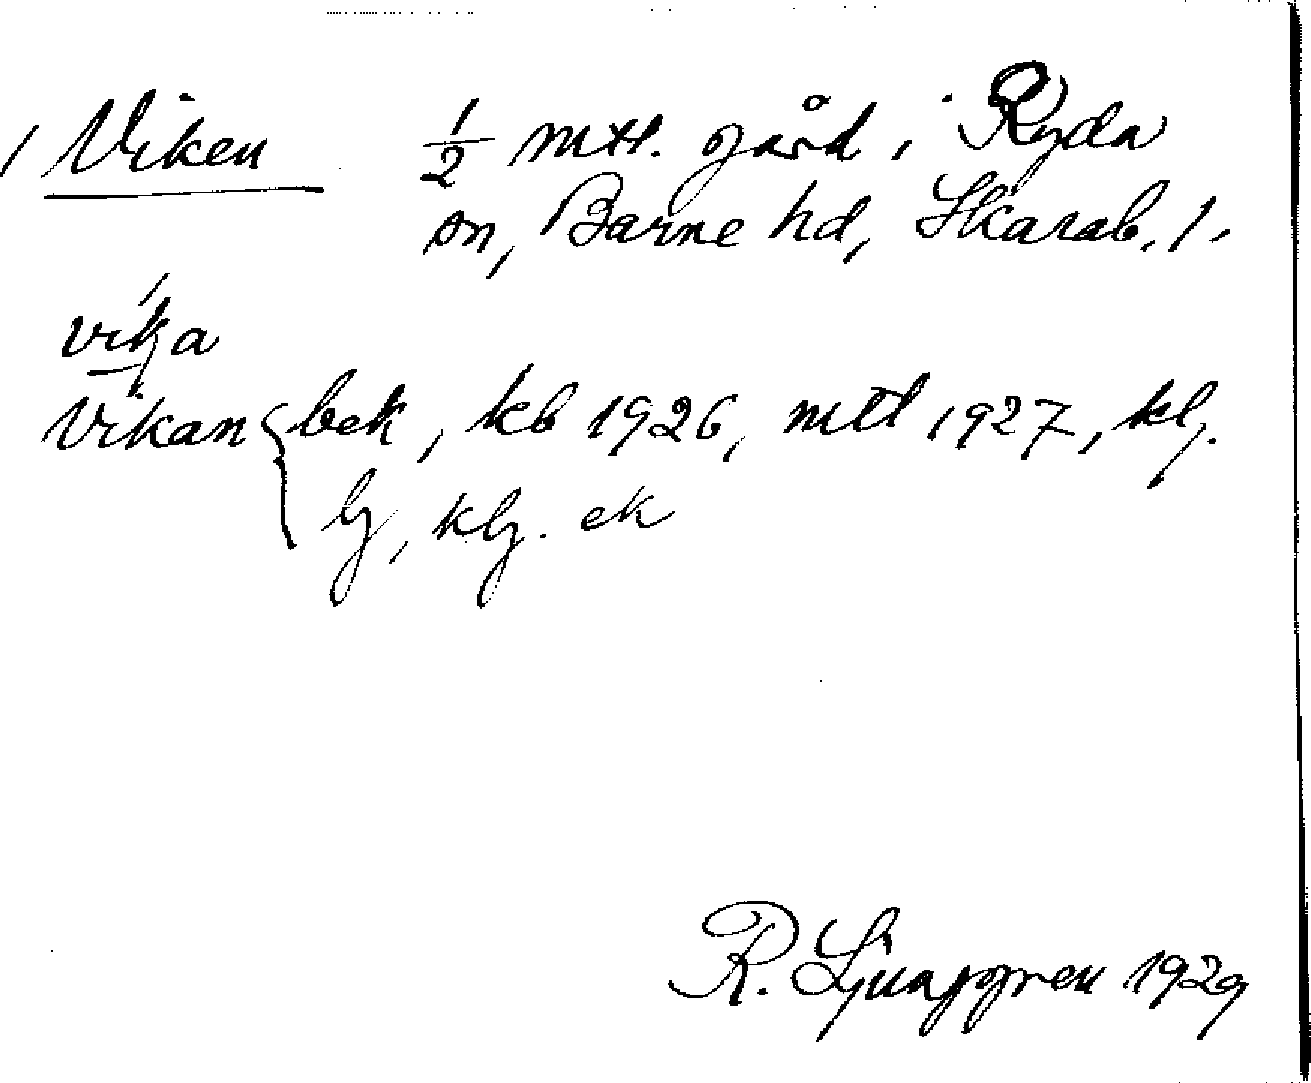 / Viken ½ mtl. gård i Ryda
sn, Barne hd, Skarab. l.
vika
Vikan { bek, kb 1926, mtl 1927, klj.
lj, klj. ek
R. Ljunggren 1929